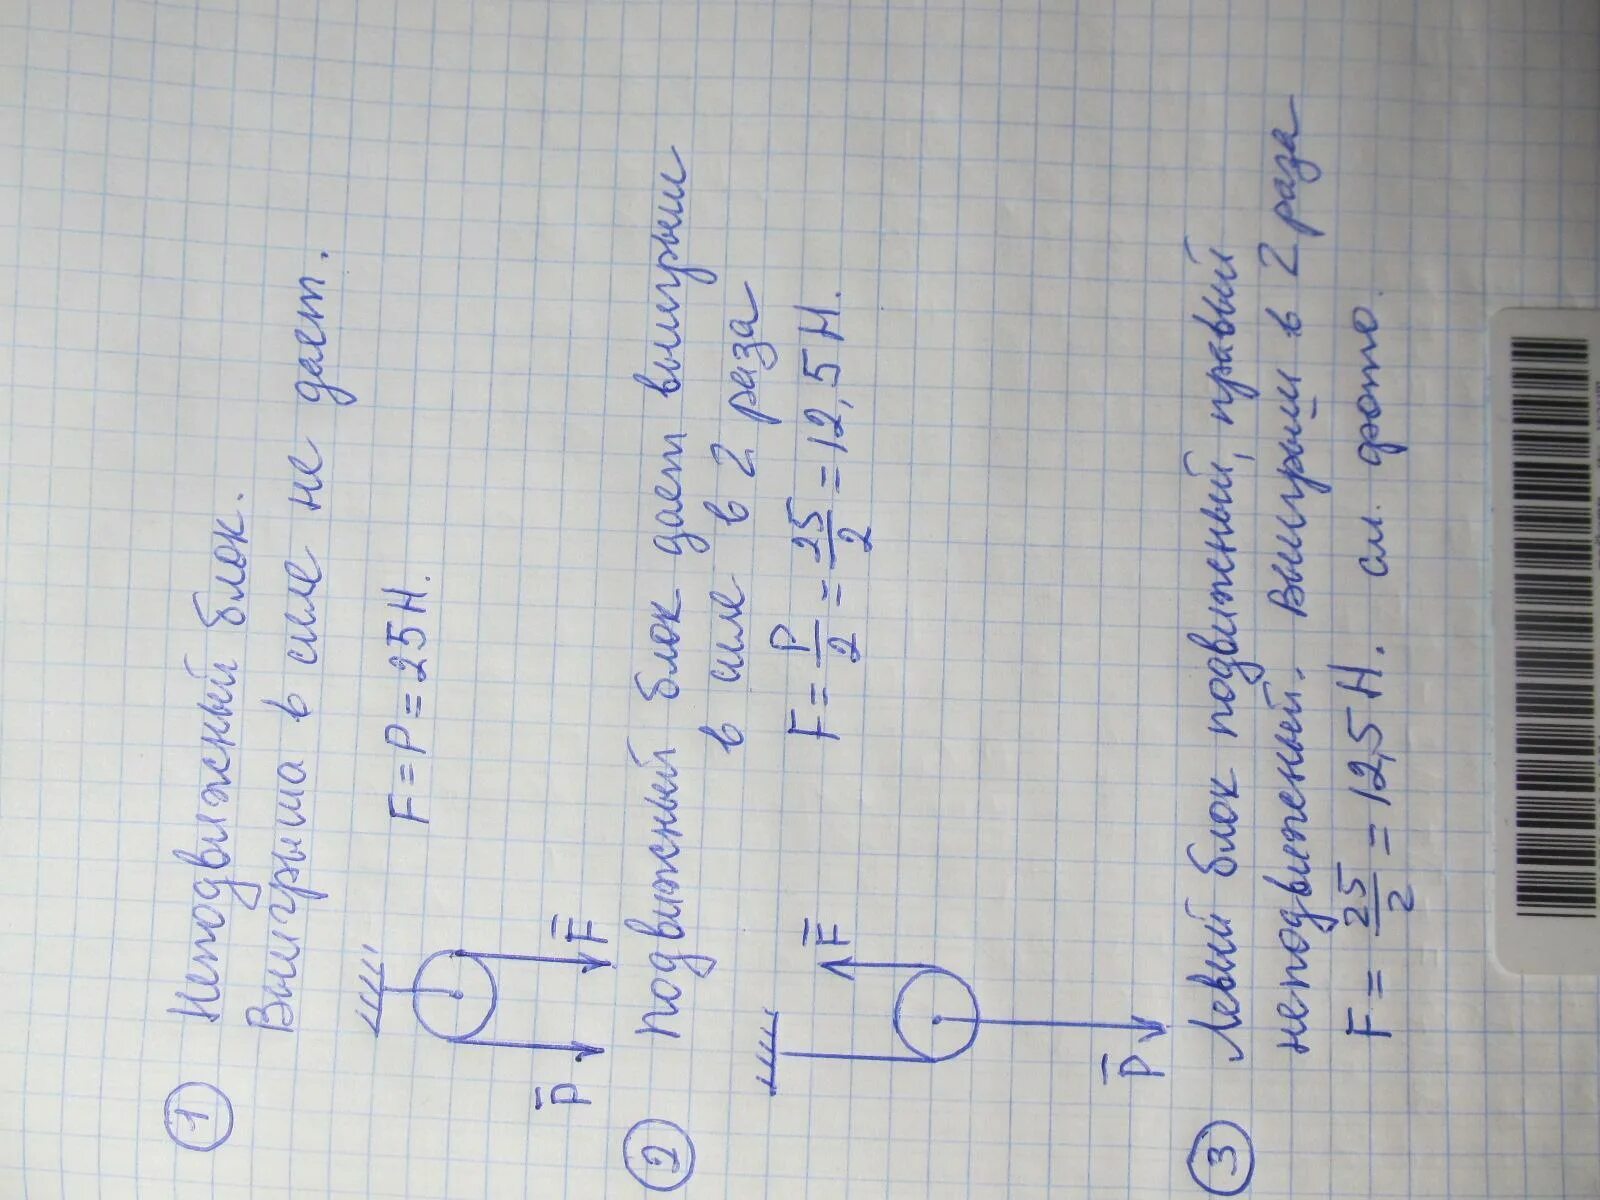 ① Неподвижный блок.
Выигрыша в силе не дает.
F = P = 25 Н.
P̄ F̄
② Подвижный блок дает выигрыш
в силе в 2 раза
F = P/2 = 25/2 = 12,5 Н.
F̄
P̄
③ Левый блок подвижный, правый
неподвижный. Выигрыш в 2 раза
F = 25/2 = 12,5 Н. см. фото.